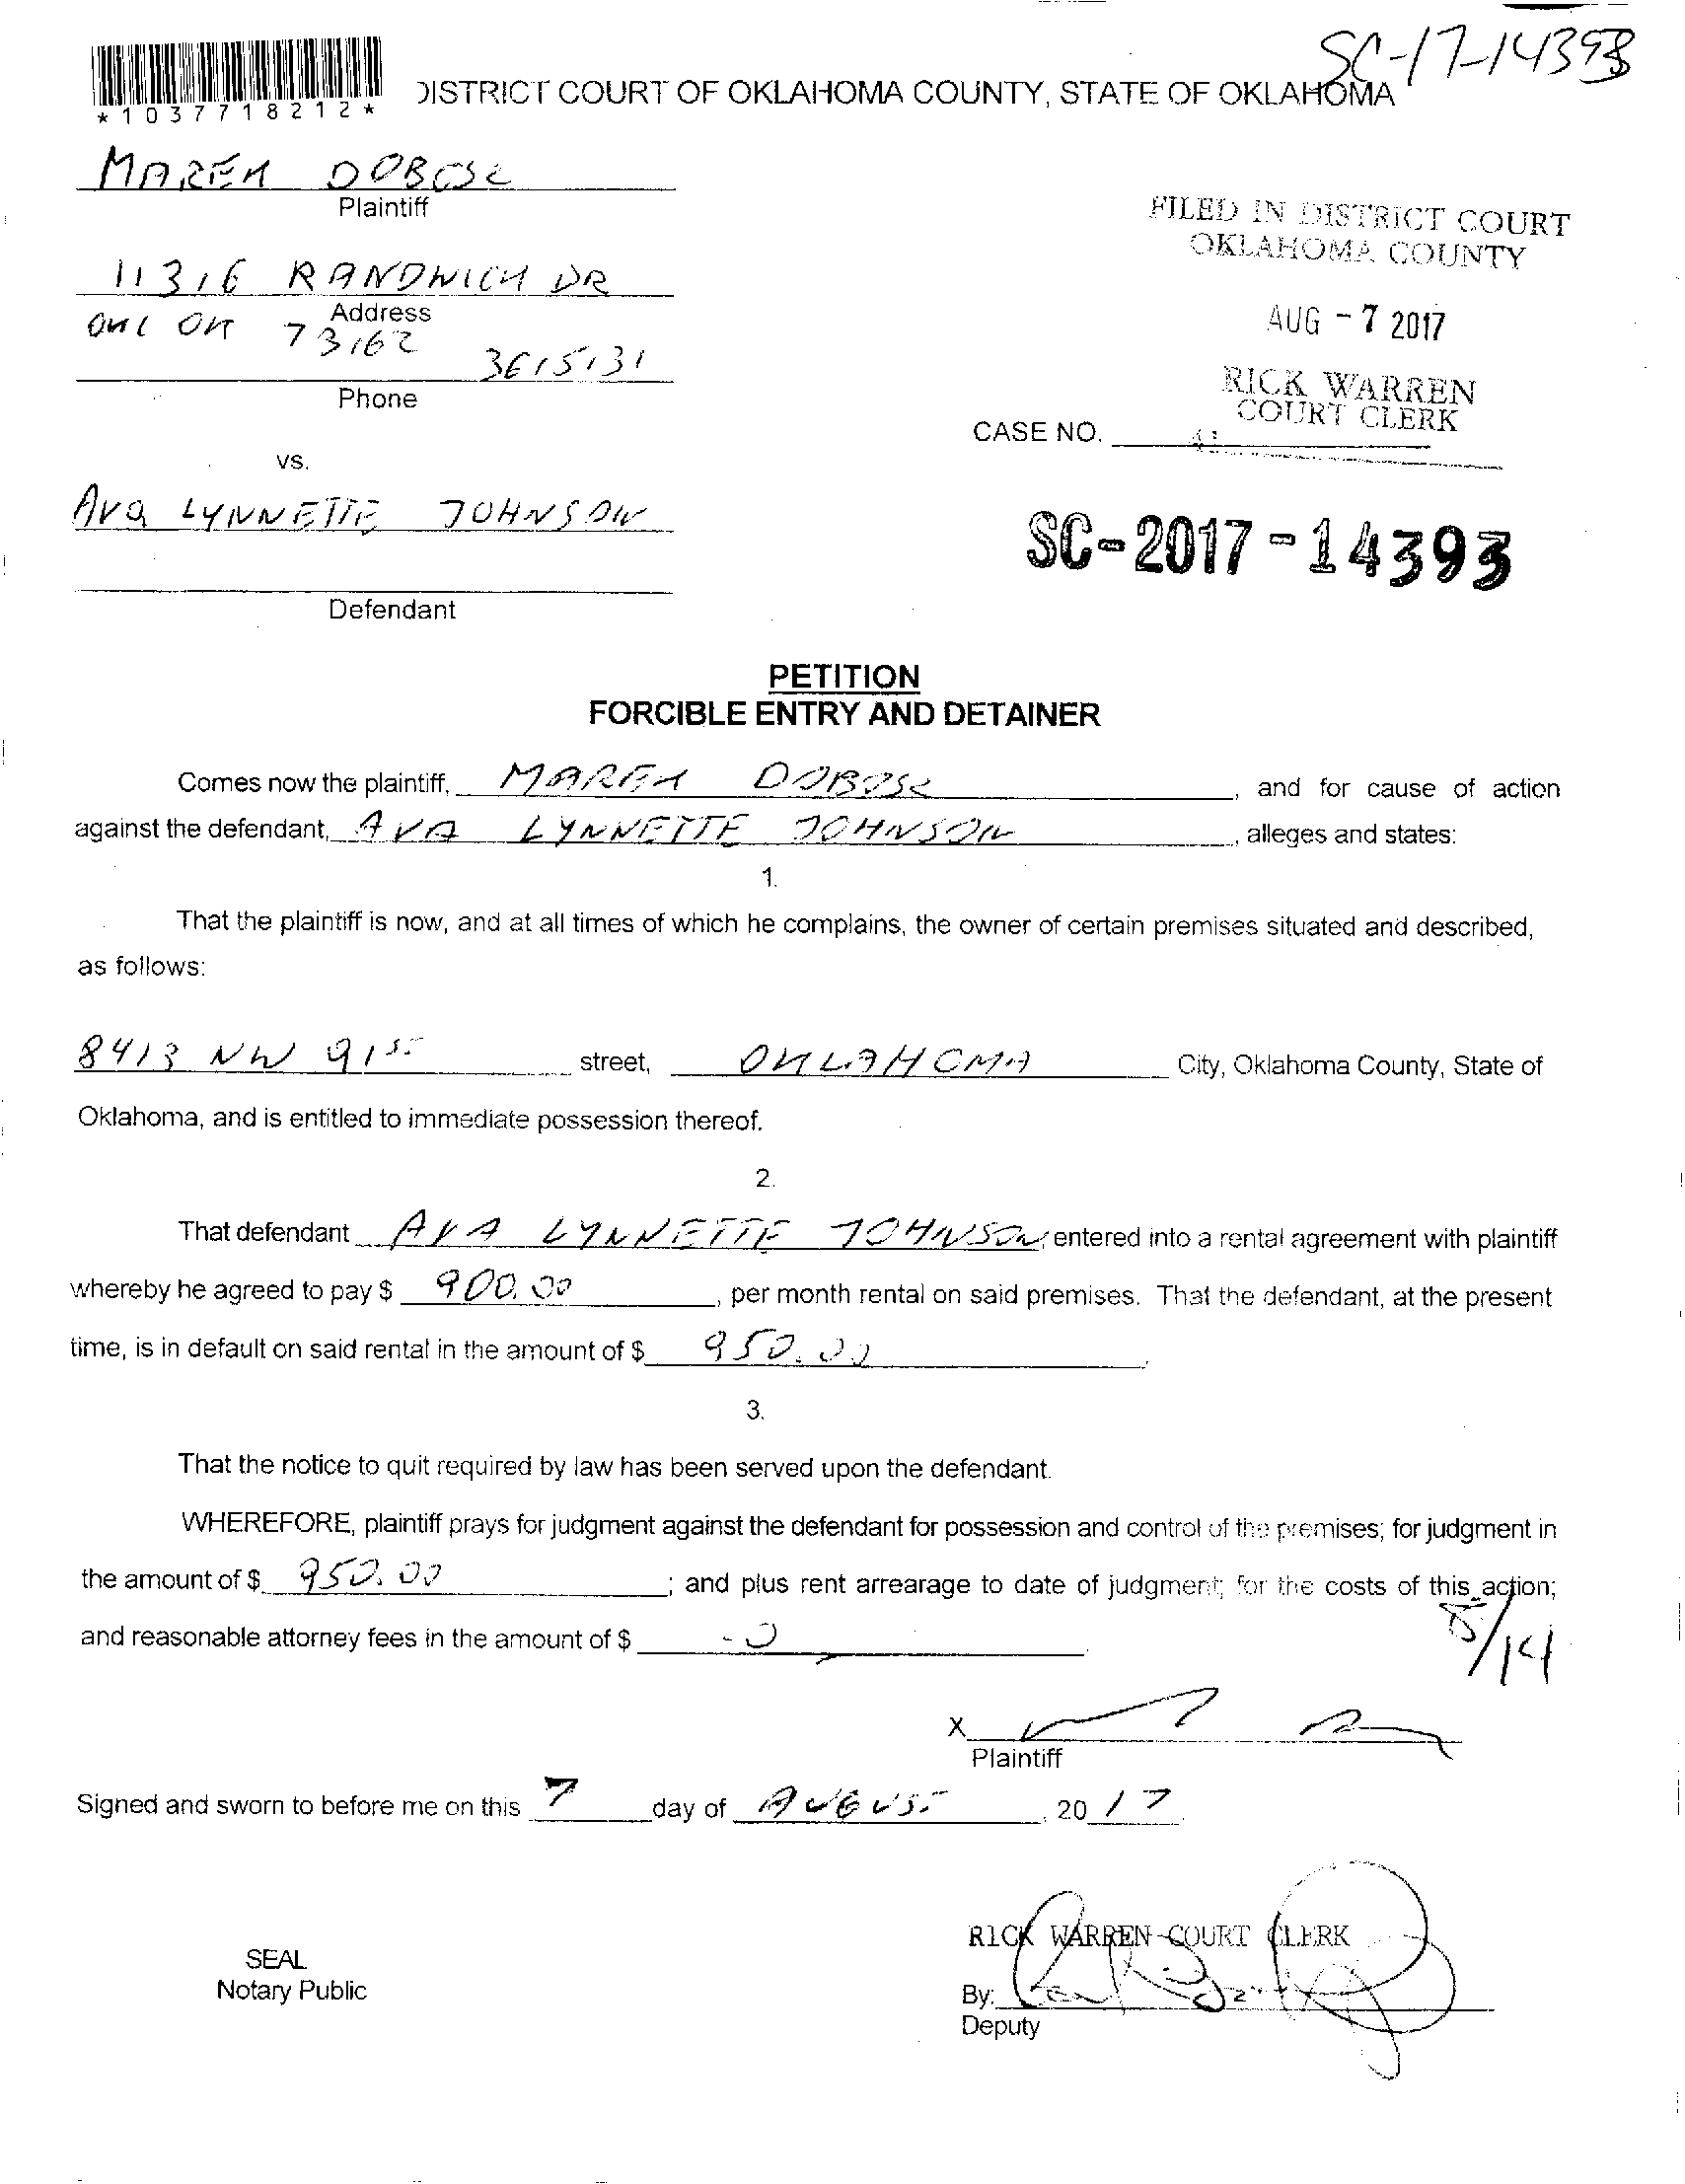 SC-17-14393
*1037718212*
DISTRICT COURT OF OKLAHOMA COUNTY, STATE OF OKLAHOMA
MAREK DOBOSZ
Plaintiff
FILED IN DISTRICT COURT
OKLAHOMA COUNTY
11316 RANDWICK DR
Address
AUG - 7 2017
OKC OK 73162
3615131
Phone
RICK WARREN
COURT CLERK
CASE NO.
vs.
AVA LYNNETTE JOHNSON
SC-2017-14393
Defendant
PETITION
FORCIBLE ENTRY AND DETAINER
Comes now the plaintiff, MAREK DOBOSZ, and for cause of action
against the defendant, AVA LYNNETTE JOHNSON, alleges and states:
1.
That the plaintiff is now, and at all times of which he complains, the owner of certain premises situated and described,
as follows:
8413 NW 91ST street, OKLAHOMA City, Oklahoma County, State of
Oklahoma, and is entitled to immediate possession thereof.
2.
That defendant AVA LYNNETTE JOHNSON, entered into a rental agreement with plaintiff
whereby he agreed to pay $ 900.00, per month rental on said premises. That the defendant, at the present
time, is in default on said rental in the amount of $ 950.00.
3.
That the notice to quit required by law has been served upon the defendant.
WHEREFORE, plaintiff prays for judgment against the defendant for possession and control of the premises; for judgment in
the amount of $ 950.00; and plus rent arrearage to date of judgment; for the costs of this action;
and reasonable attorney fees in the amount of $ -0
8/14
X
Plaintiff
Signed and sworn to before me on this 7 day of AUGUST, 2017
RICK WARREN COURT CLERK
SEAL
Notary Public
By:
Deputy